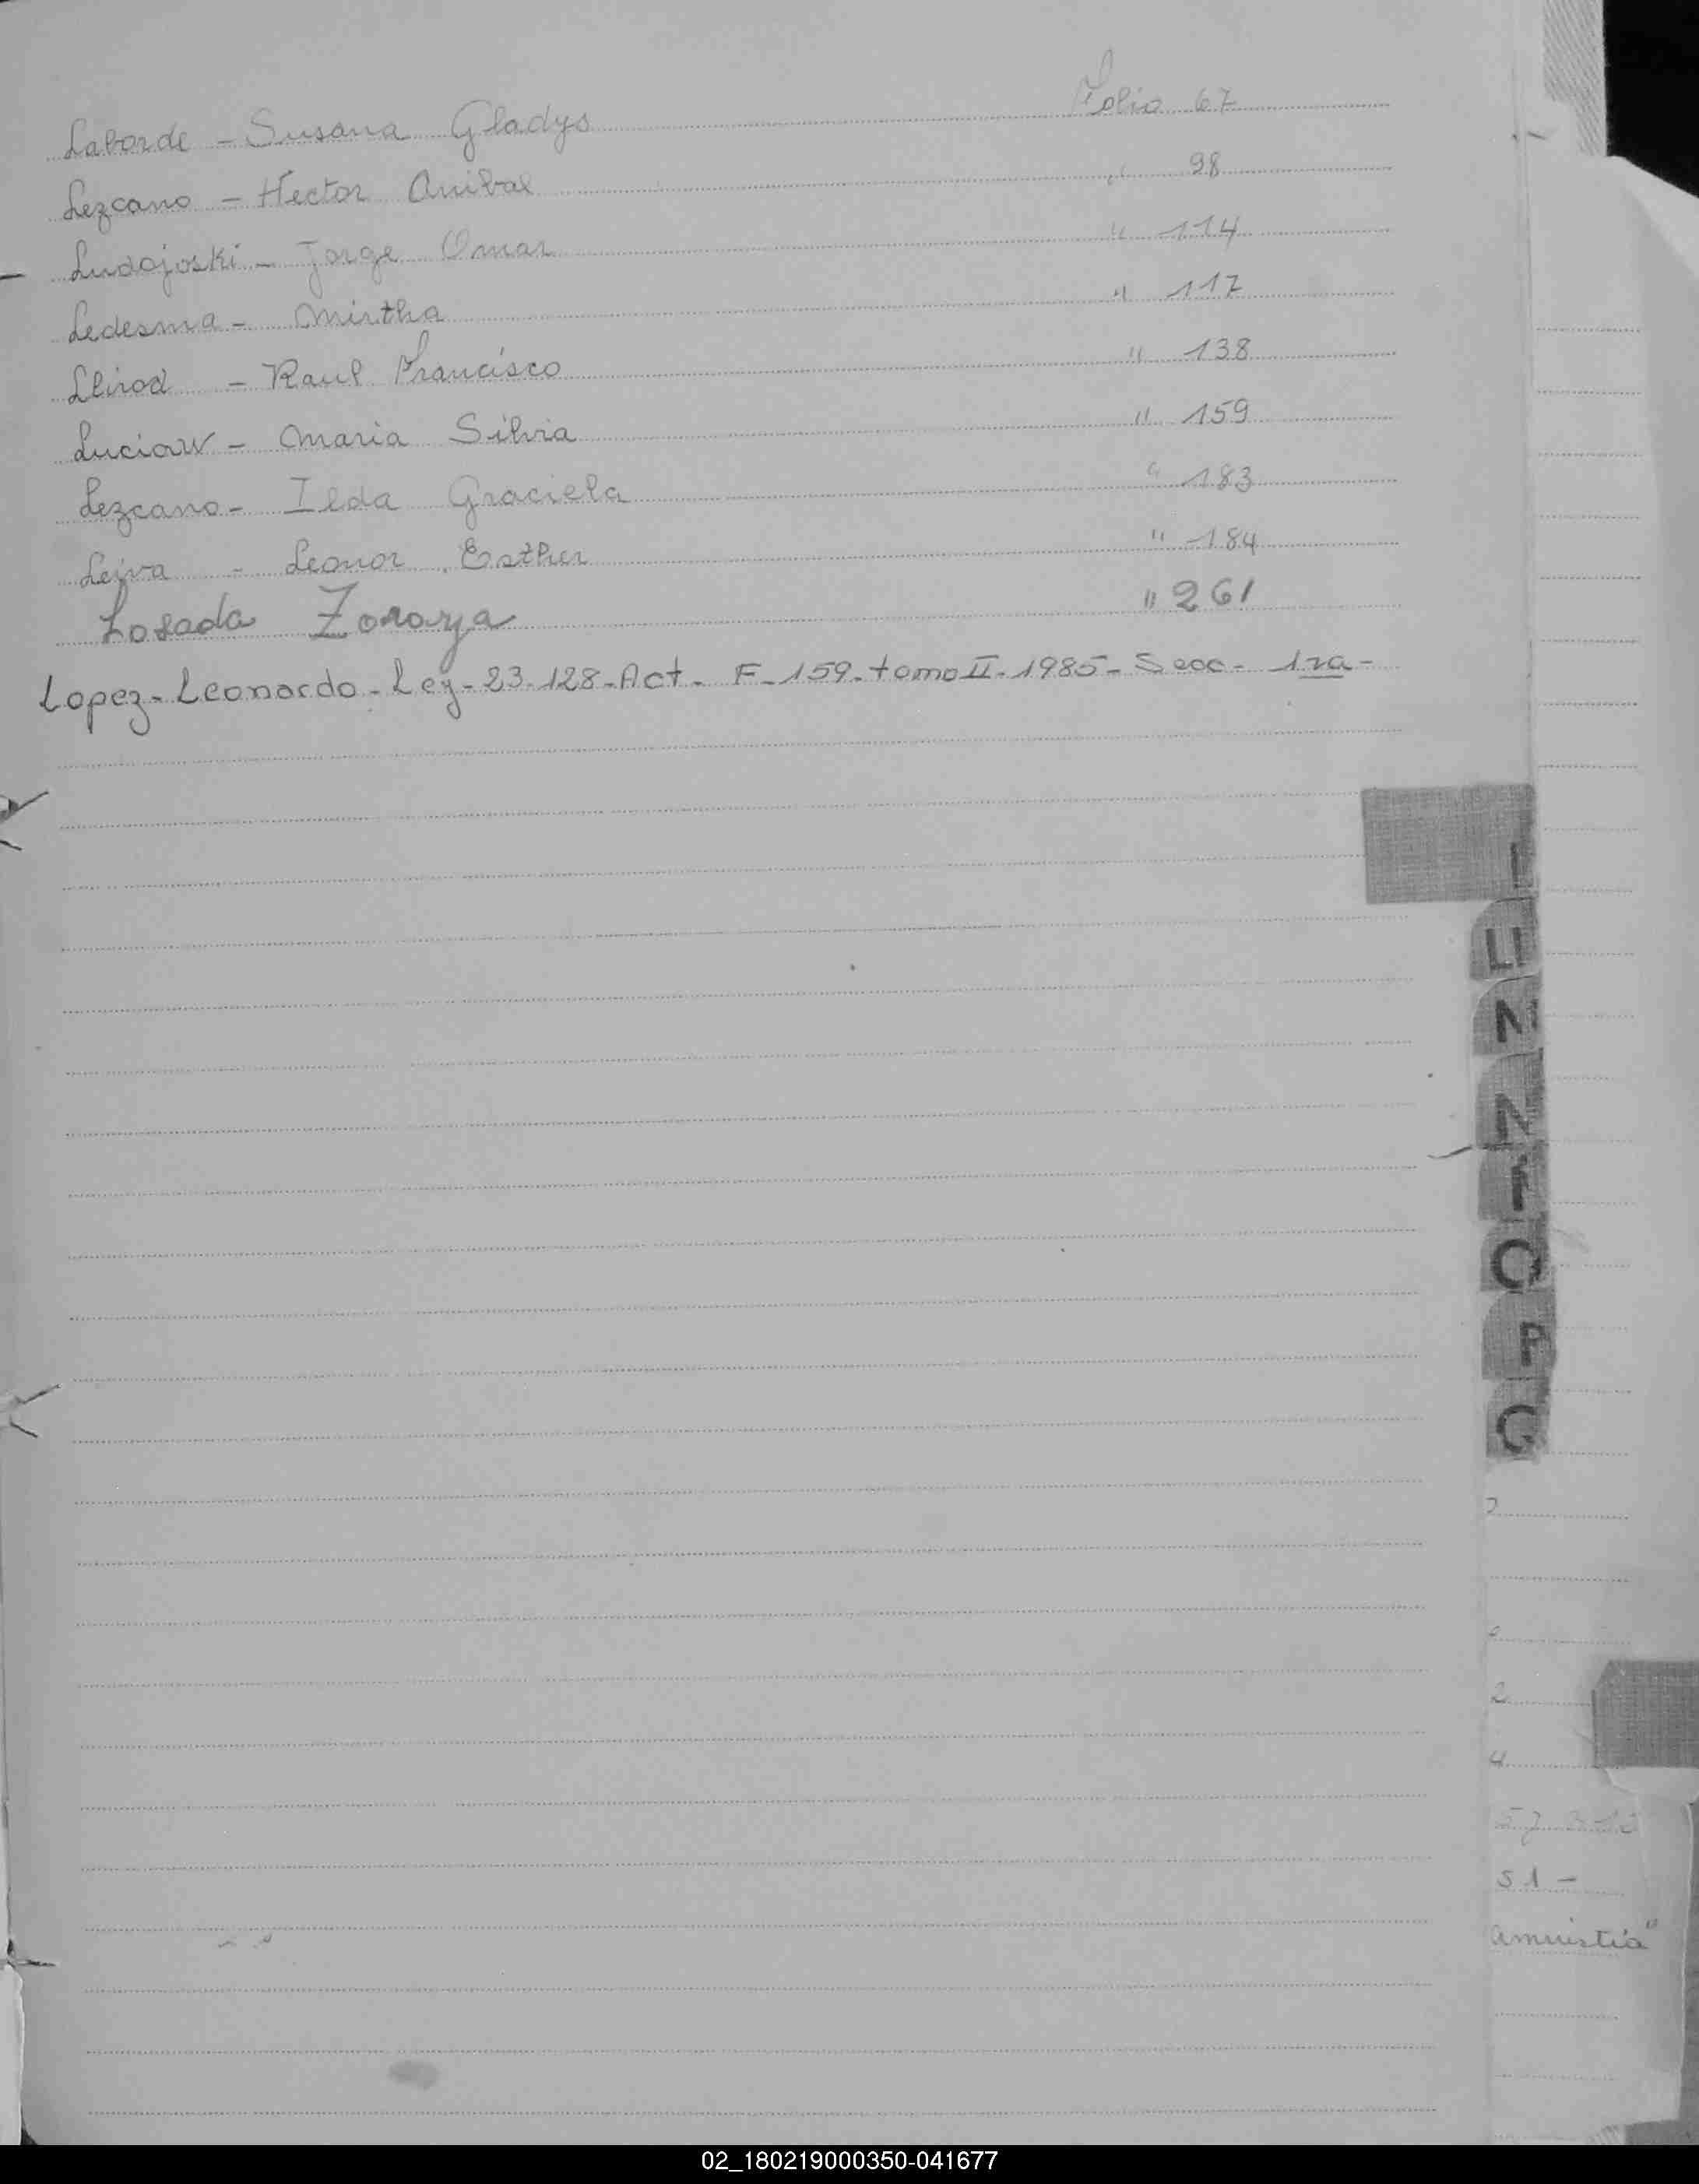 Laborde - Susana Gladys Folio 67
Lezcano - Hector Anibal " 98
Ludojoski - Jorge Omar " 114
Ledesma - Mirtha " 117
Llirod - Raul Francisco " 138
Luciow - Maria Silvia " 159
Lezcano - Ilda Graciela " 183
Leiva - Leonor Esther " 184
Losada Zoraya " 261
Lopez - Leonardo - Ley - 23.128 - Act. F - 159 - tomo II - 1985 - Secc - 1ra -
LL
N
Ñ
O
P
Q
2
4
51 -
amnistia"
02_180219000350-041677